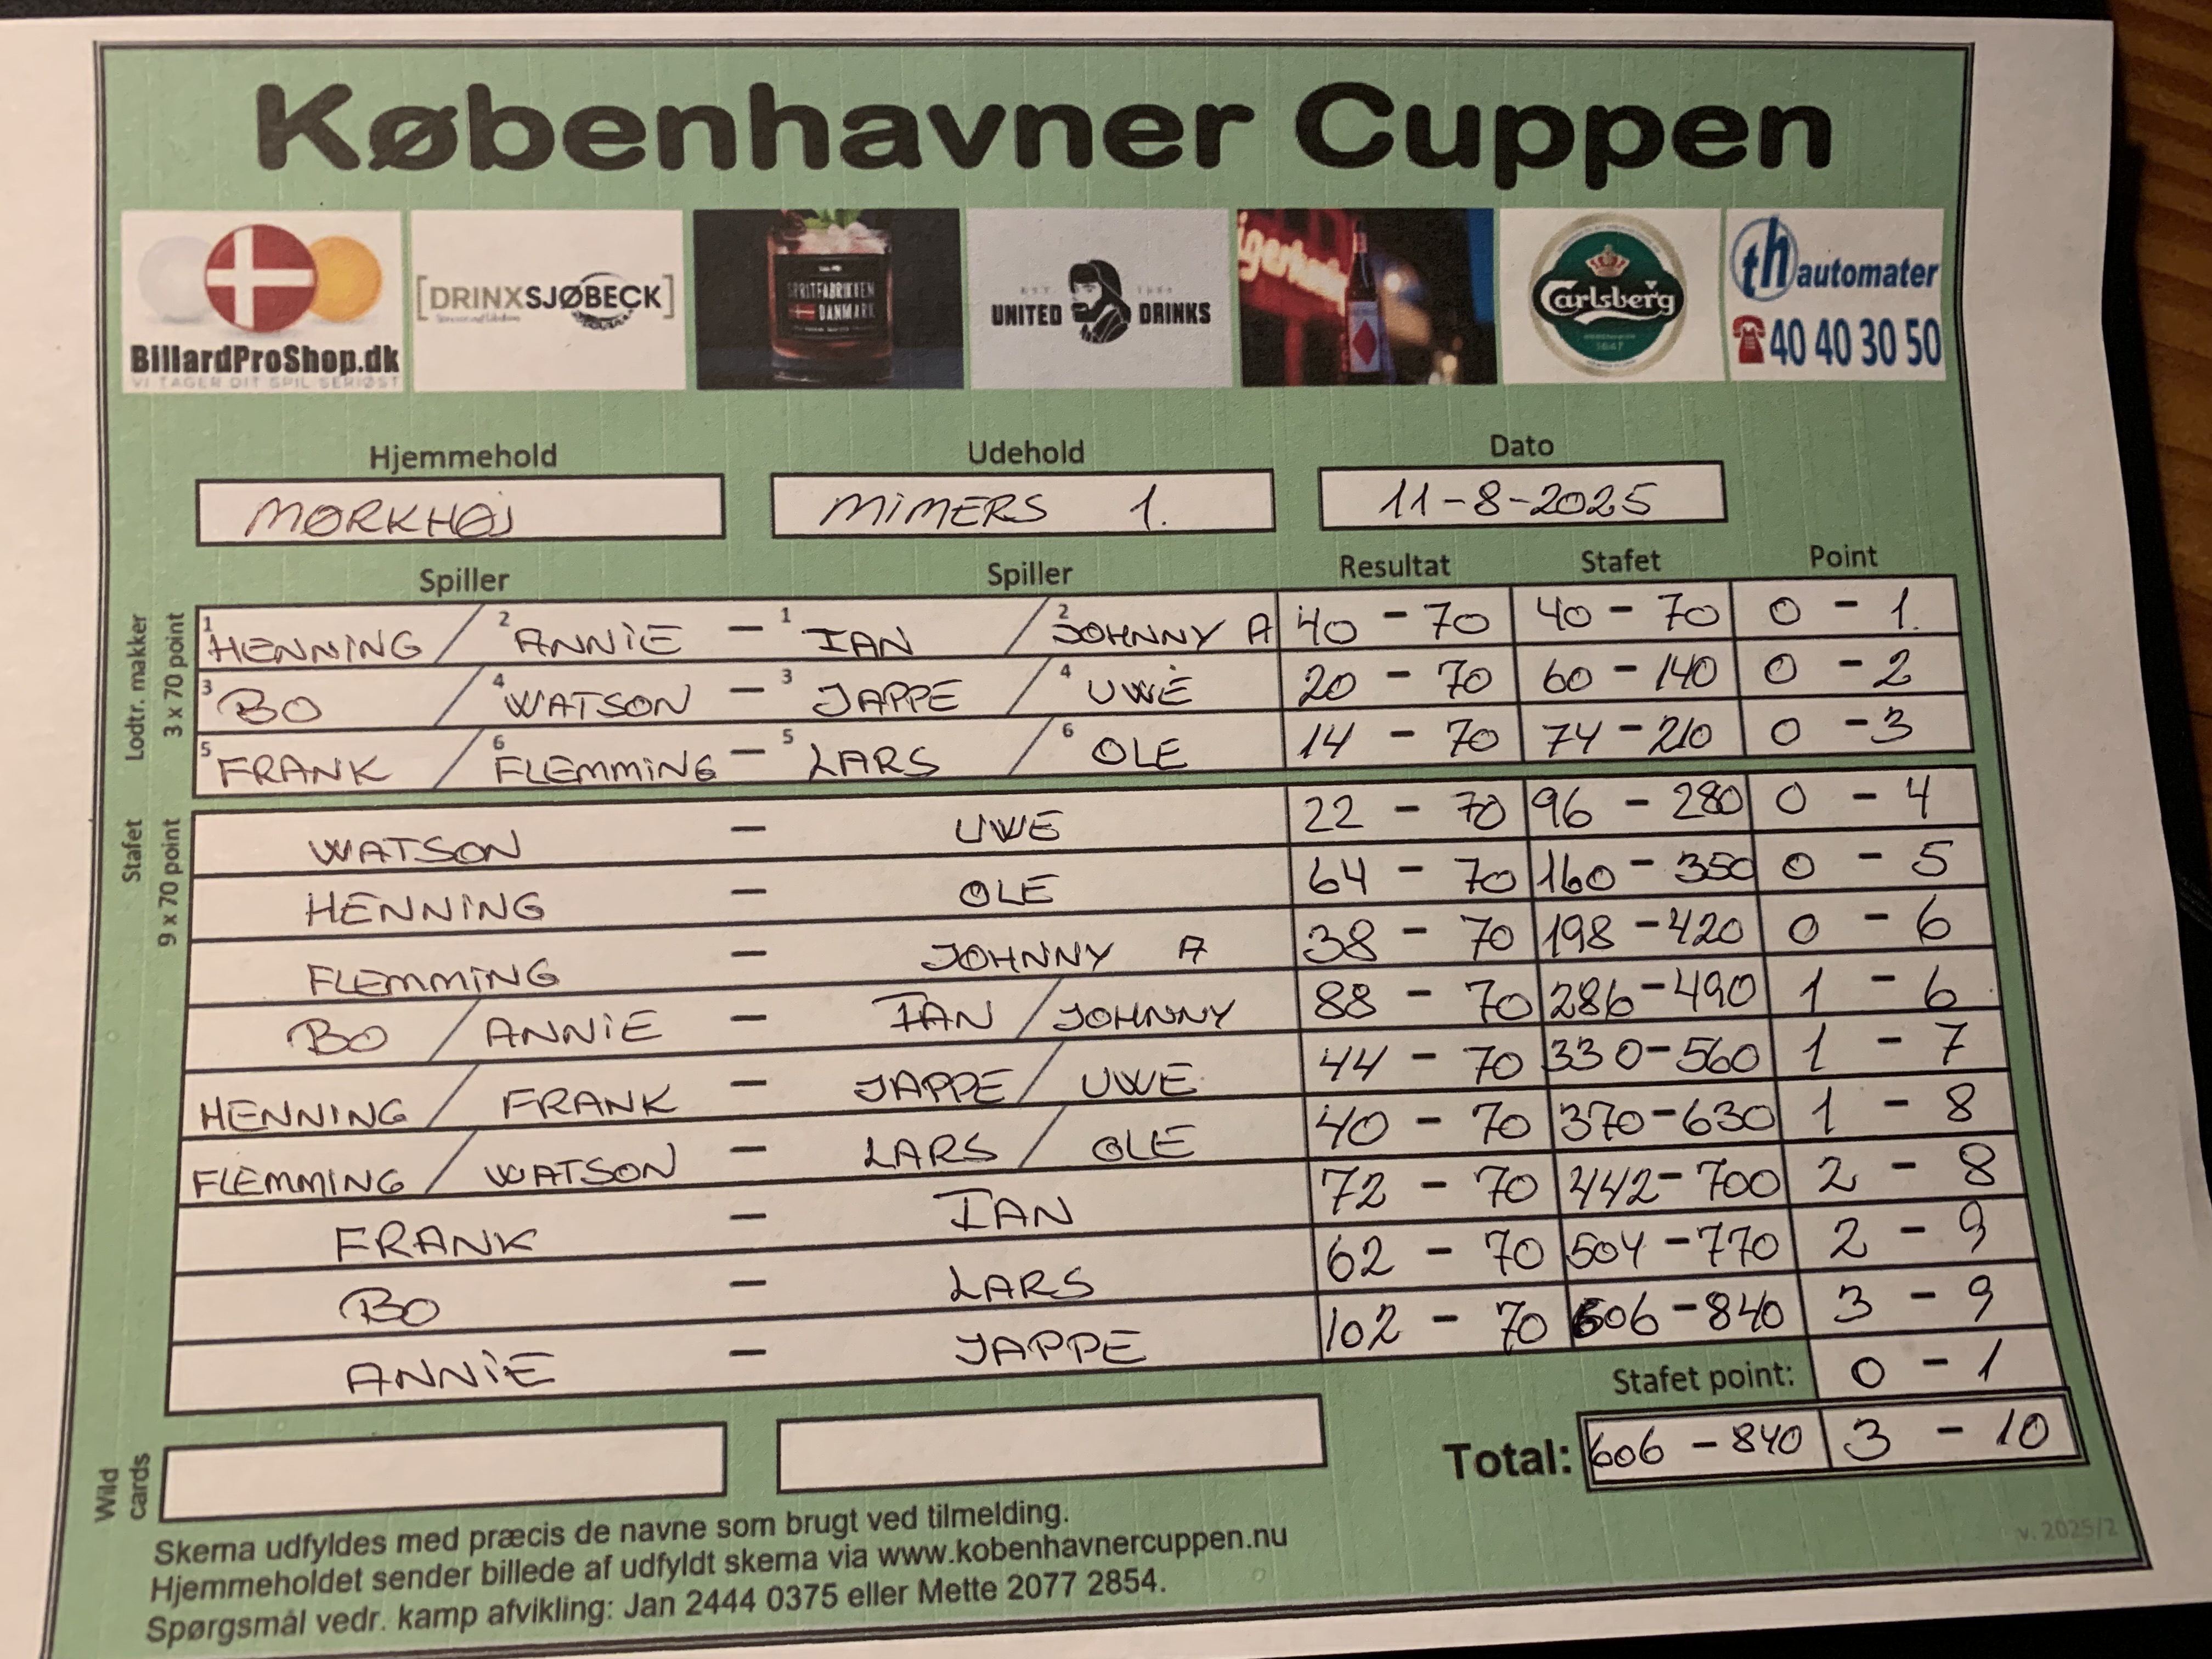 Københavner Cuppen
BillardProShop.dk
VI TAGER DIT SPIL SERIØST
[DRINXSJØBECK]
SPRITFABRIKKEN
DANMARK
UNITED DRINKS
Carlsberg
1847
th automater
40 40 30 50
Hjemmehold Udehold Dato
MØRKHØJ MiMERS 1. 11-8-2025
Spiller Spiller Resultat Stafet Point
Lodtr. makker
3 x 70 point
1 HENNiNG / 2 ANNiE - 1 IAN / 2 JOHNNY A 40 - 70 40 - 70 0 - 1.
3 BO / 4 WATSON - 3 JAPPE / 4 UWE 20 - 70 60 - 140 0 - 2
5 FRANK / 6 FLEMMiNG - 5 LARS / 6 OLE 14 - 70 74 - 210 0 - 3
Stafet
9 x 70 point
WATSON - UWE 22 - 70 96 - 280 0 - 4
HENNiNG - OLE 64 - 70 160 - 350 0 - 5
FLEMMiNG - JOHNNY A 38 - 70 198 - 420 0 - 6
BO / ANNiE - IAN / JOHNNY 88 - 70 286 - 490 1 - 6
HENNiNG / FRANK - JAPPE / UWE 44 - 70 330 - 560 1 - 7
FLEMMiNG / WATSON - LARS / OLE 40 - 70 370 - 630 1 - 8
FRANK - IAN 72 - 70 442 - 700 2 - 8
BO - LARS 62 - 70 504 - 770 2 - 9
ANNiE - JAPPE 102 - 70 606 - 840 3 - 9
Stafet point: 0 - 1
Total: 606 - 840 3 - 10
Wild cards
Skema udfyldes med præcis de navne som brugt ved tilmelding.
Hjemmeholdet sender billede af udfyldt skema via www.kobenhavnercuppen.nu
Spørgsmål vedr. kamp afvikling: Jan 2444 0375 eller Mette 2077 2854.
v. 2025/2